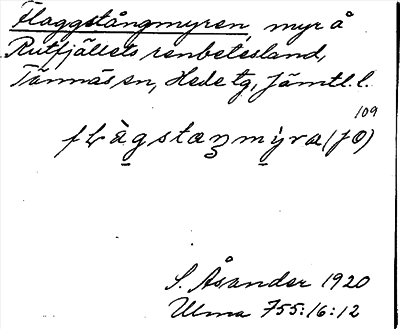 Flaggstångmyren, myr å
Rutfjällets renbetesland,
Tännäs sn, Hede tg, Jämtl. l.
109
(JO)
S. Åsander 1920
Ulma 755:16:12